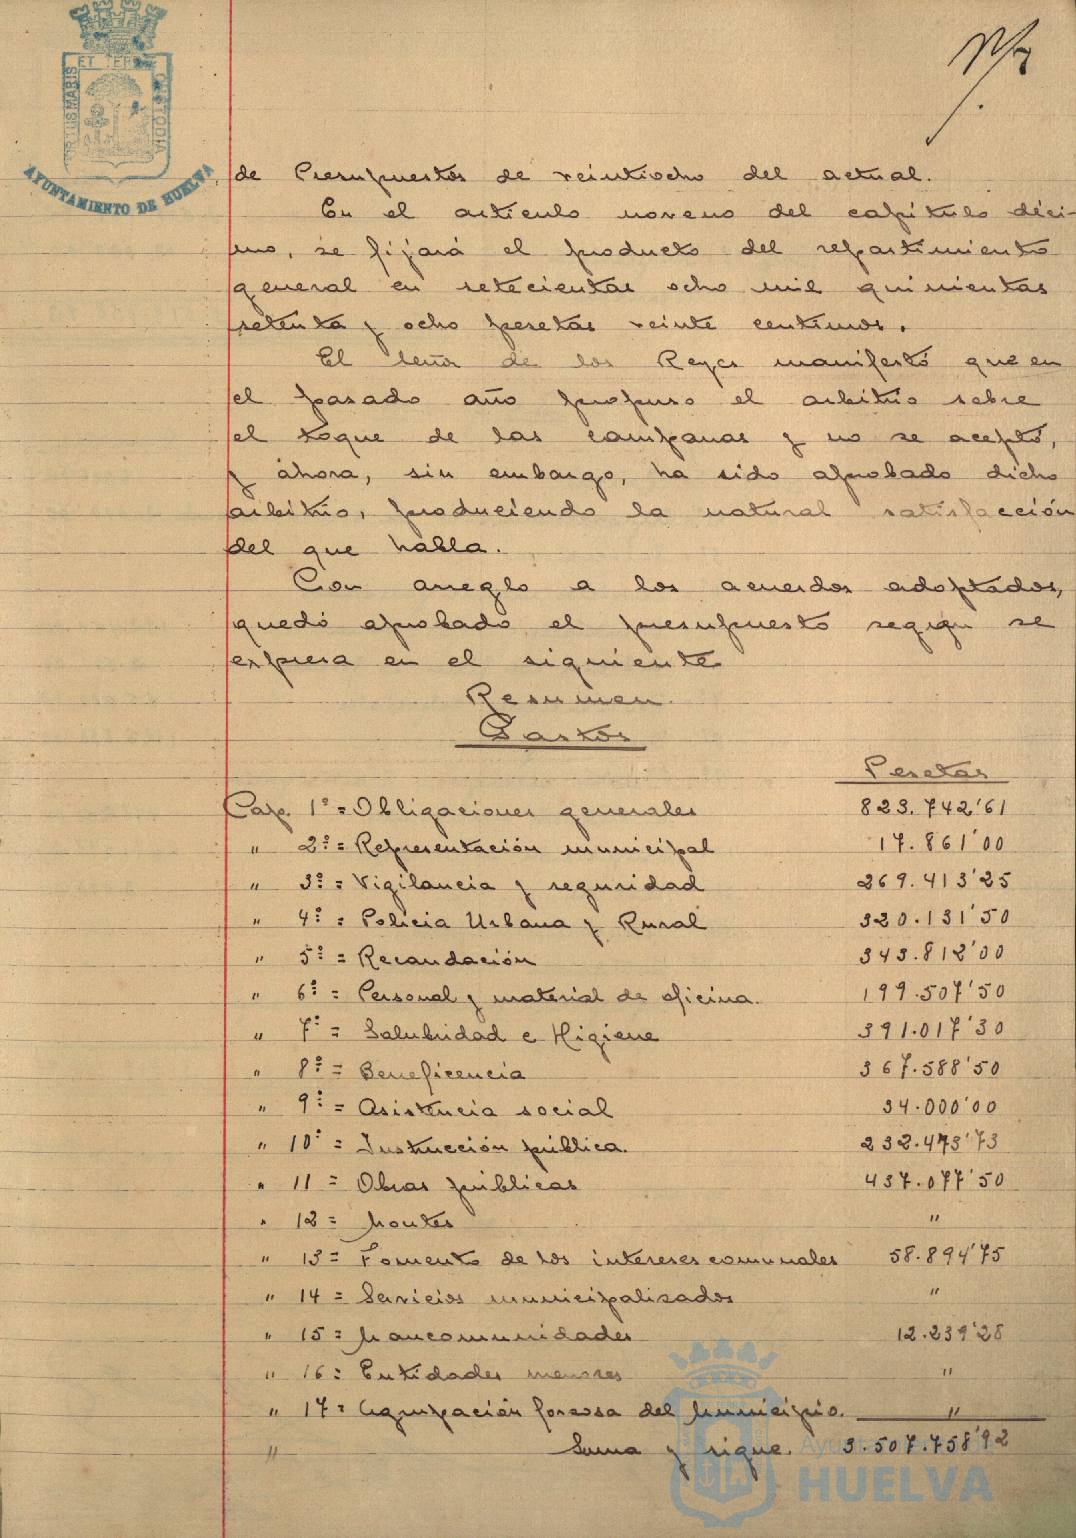 PORTUS MARIS ET TERRE CUSTODIA
AYUNTAMIENTO DE HUELVA
de Presupuestos de veintiocho del actual.
En el artículo noveno del capítulo déci-
mo, se fijará el producto del repartimiento
general en setecientas ocho mil quinientas
setenta y ocho pesetas veinte centimos.
El señor de los Reyes manifestó que en
el pasado año propuso el arbitrio sobre
el toque de las campanas y no se aceptó,
y ahora, sin embargo, ha sido aprobado dicho
arbitrio, produciendo la natural satisfacción
del que habla.
Con arreglo a los acuerdos adoptados,
quedó aprobado el presupuesto según se
expresa en el siguiente
Resumen
Gastos
Pesetas
Cap. 1º = Obligaciones generales 823.742'61
" 2º = Representación municipal 17.861'00
" 3º = Vigilancia y seguridad 269.413'25
" 4º = Policía Urbana y Rural 320.131'50
" 5º = Recaudación 343.812'00
" 6º = Personal y material de oficina. 199.507'50
" 7º = Salubridad e Higiene 391.017'30
" 8º = Beneficencia 367.588'50
" 9º = Asistencia social 34.000'00
" 10º = Instrucción pública. 232.473'73
" 11 = Obras públicas 437.077'50
" 12 = Montes "
" 13 = Fomento de los intereses comunales 58.894'75
" 14 = Servicios municipalizados "
" 15 = Mancomunidades 12.239'28
" 16 = Entidades menores "
" 17 = Agrupación forzosa del Municipio. "
" Suma y sigue. 3.507.758'92
Ayuntamiento de
HUELVA